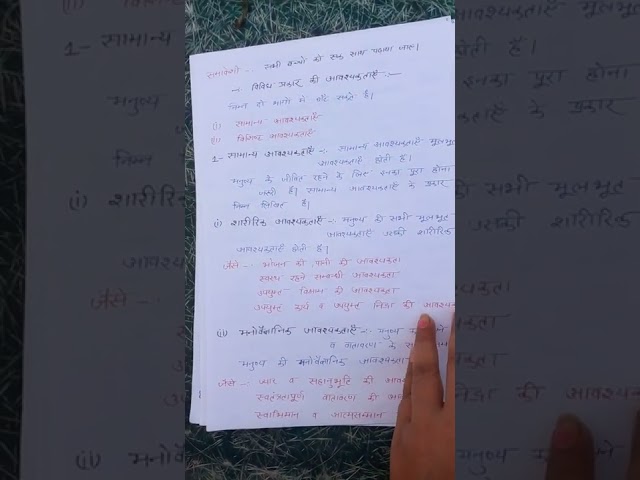 समावेशी -: सभी बच्चों को एक साथ पढ़ाया जाए।
-: विविध प्रकार की आवश्यकताएँ :-
निम्न दो भागों में बाँट सकते है।
(i) सामान्य आवश्यकताएँ
(ii) विशिष्ट आवश्यकताएँ
1- सामान्य आवश्यकताएँ -: सामान्य आवश्यकताएँ मूलभूत
आवश्यकताएँ होती है।
मनुष्य के जीवित रहने के लिए इनका पूरा होना
जरूरी है। सामान्य आवश्यकताएँ के प्रकार
निम्न लिखित है।
(i) शारीरिक आवश्यकताएँ -: मनुष्य की सभी मूलभूत
आवश्यकताएँ उसकी शारीरिक
आवश्यकताएँ होती है।
जैसे -: भोजन की पानी की आवश्यकता
स्वस्थ रहने सम्बन्धी आवश्यकता
उपयुक्त विश्राम की आवश्यकता
उपयुक्त कार्य व उपयुक्त निद्रा की आवश्यक
(ii) मनोवैज्ञानिक आवश्यकताएँ -: मनुष्य
व वातावरण के
मनुष्य की मनोवैज्ञानिक आवश्यकता
जैसे -: प्यार व सहानुभूति की आवश्य
स्वतंत्रतापूर्ण वातावरण की
स्वाभिमान व आत्मसम्मान